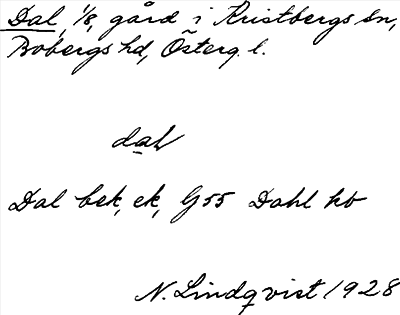 Dal, 1/8, gård i Kristbergs sn,
Bobergs hd, Österg. l.
dal
Dal bek, ek, G55 Dahl kb
N. Lindqvist 1928